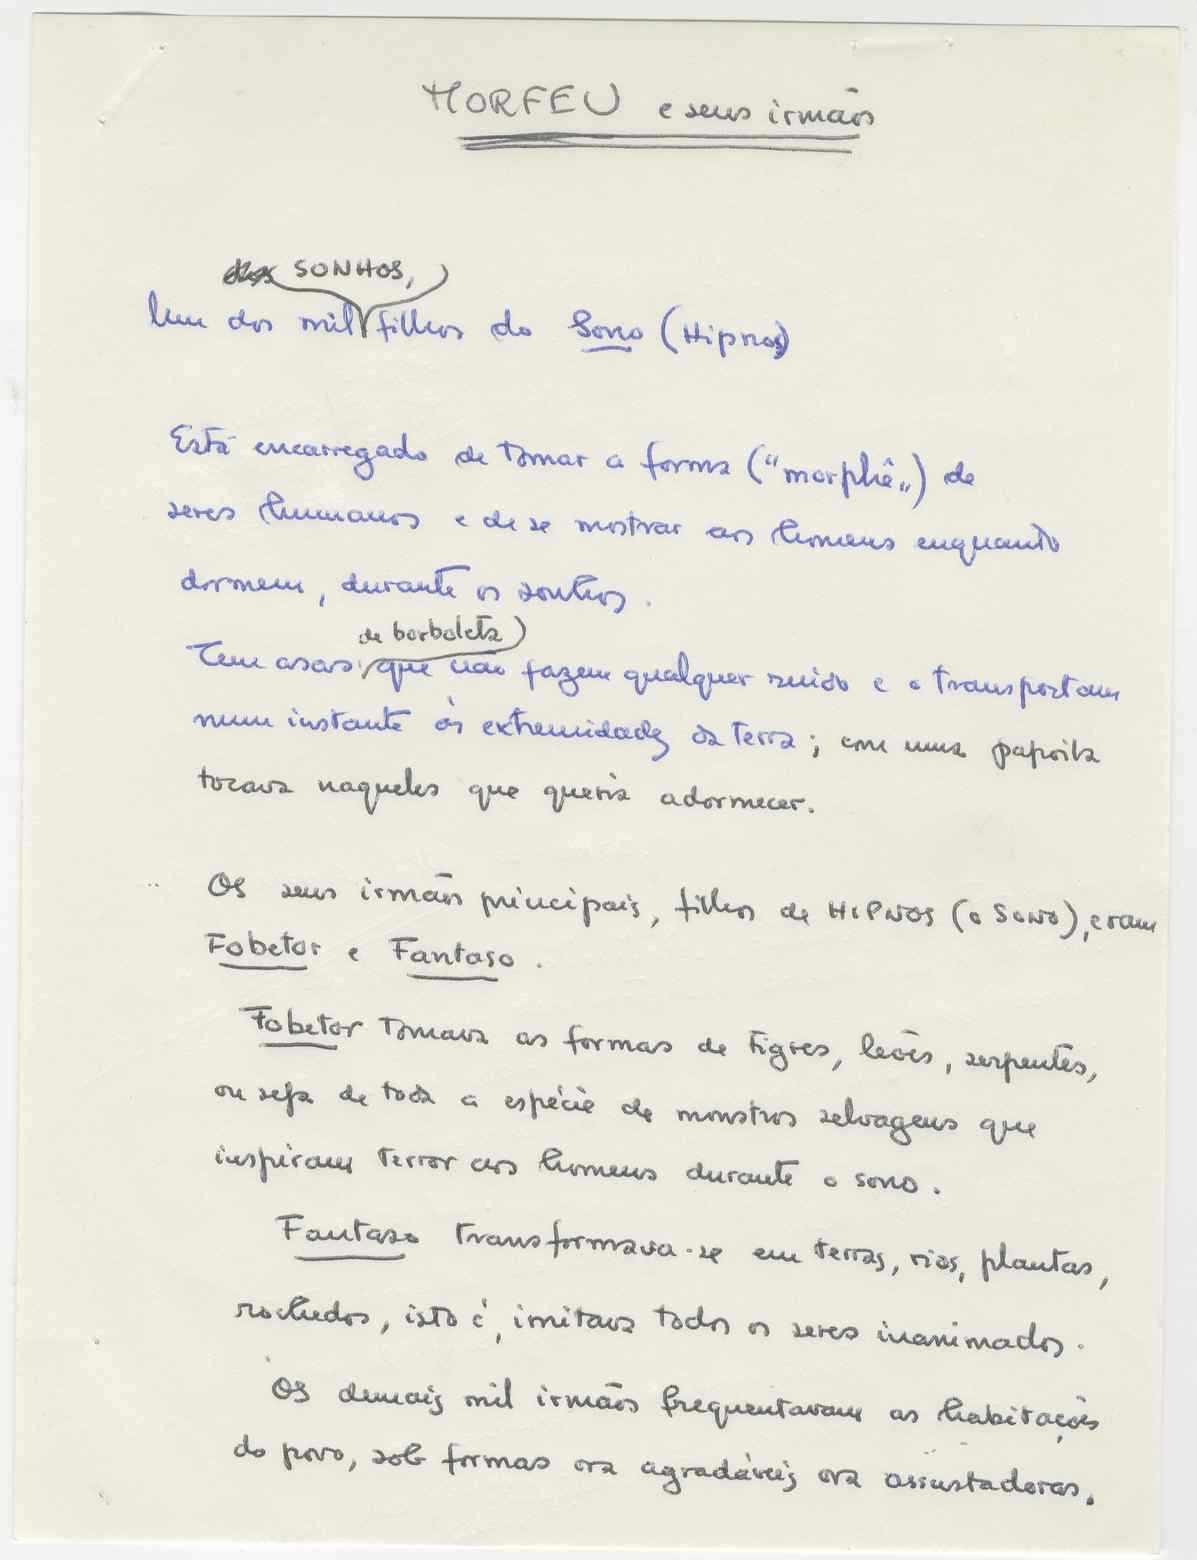 MORFEU e seus irmãos
SONHOS,
Um dos mil filhos do Sono (Hipnos)
Está encarregado de tomar a forma ("morphê„) de
seres humanos e de se mostrar aos homens enquanto
dormem, durante os sonhos.
de borboleta
Tem asas, que não fazem qualquer ruído e o transportam
num instante às extremidades da terra; com uma papoila
tocava naqueles que queria adormecer.
Os seus irmãos principais, filhos de HIPNOS (o SONO), eram
Fobetor e Fantaso.
Fobetor tomava as formas de tigres, leões, serpentes,
ou seja de toda a espécie de monstros selvagens que
inspiram terror aos homens durante o sono.
Fantaso transformava-se em terras, rios, plantas,
rochedos, isto é, imitava todos os seres inanimados.
Os demais mil irmãos frequentavam as habitações
do povo, sob formas ora agradáveis ora assustadoras.